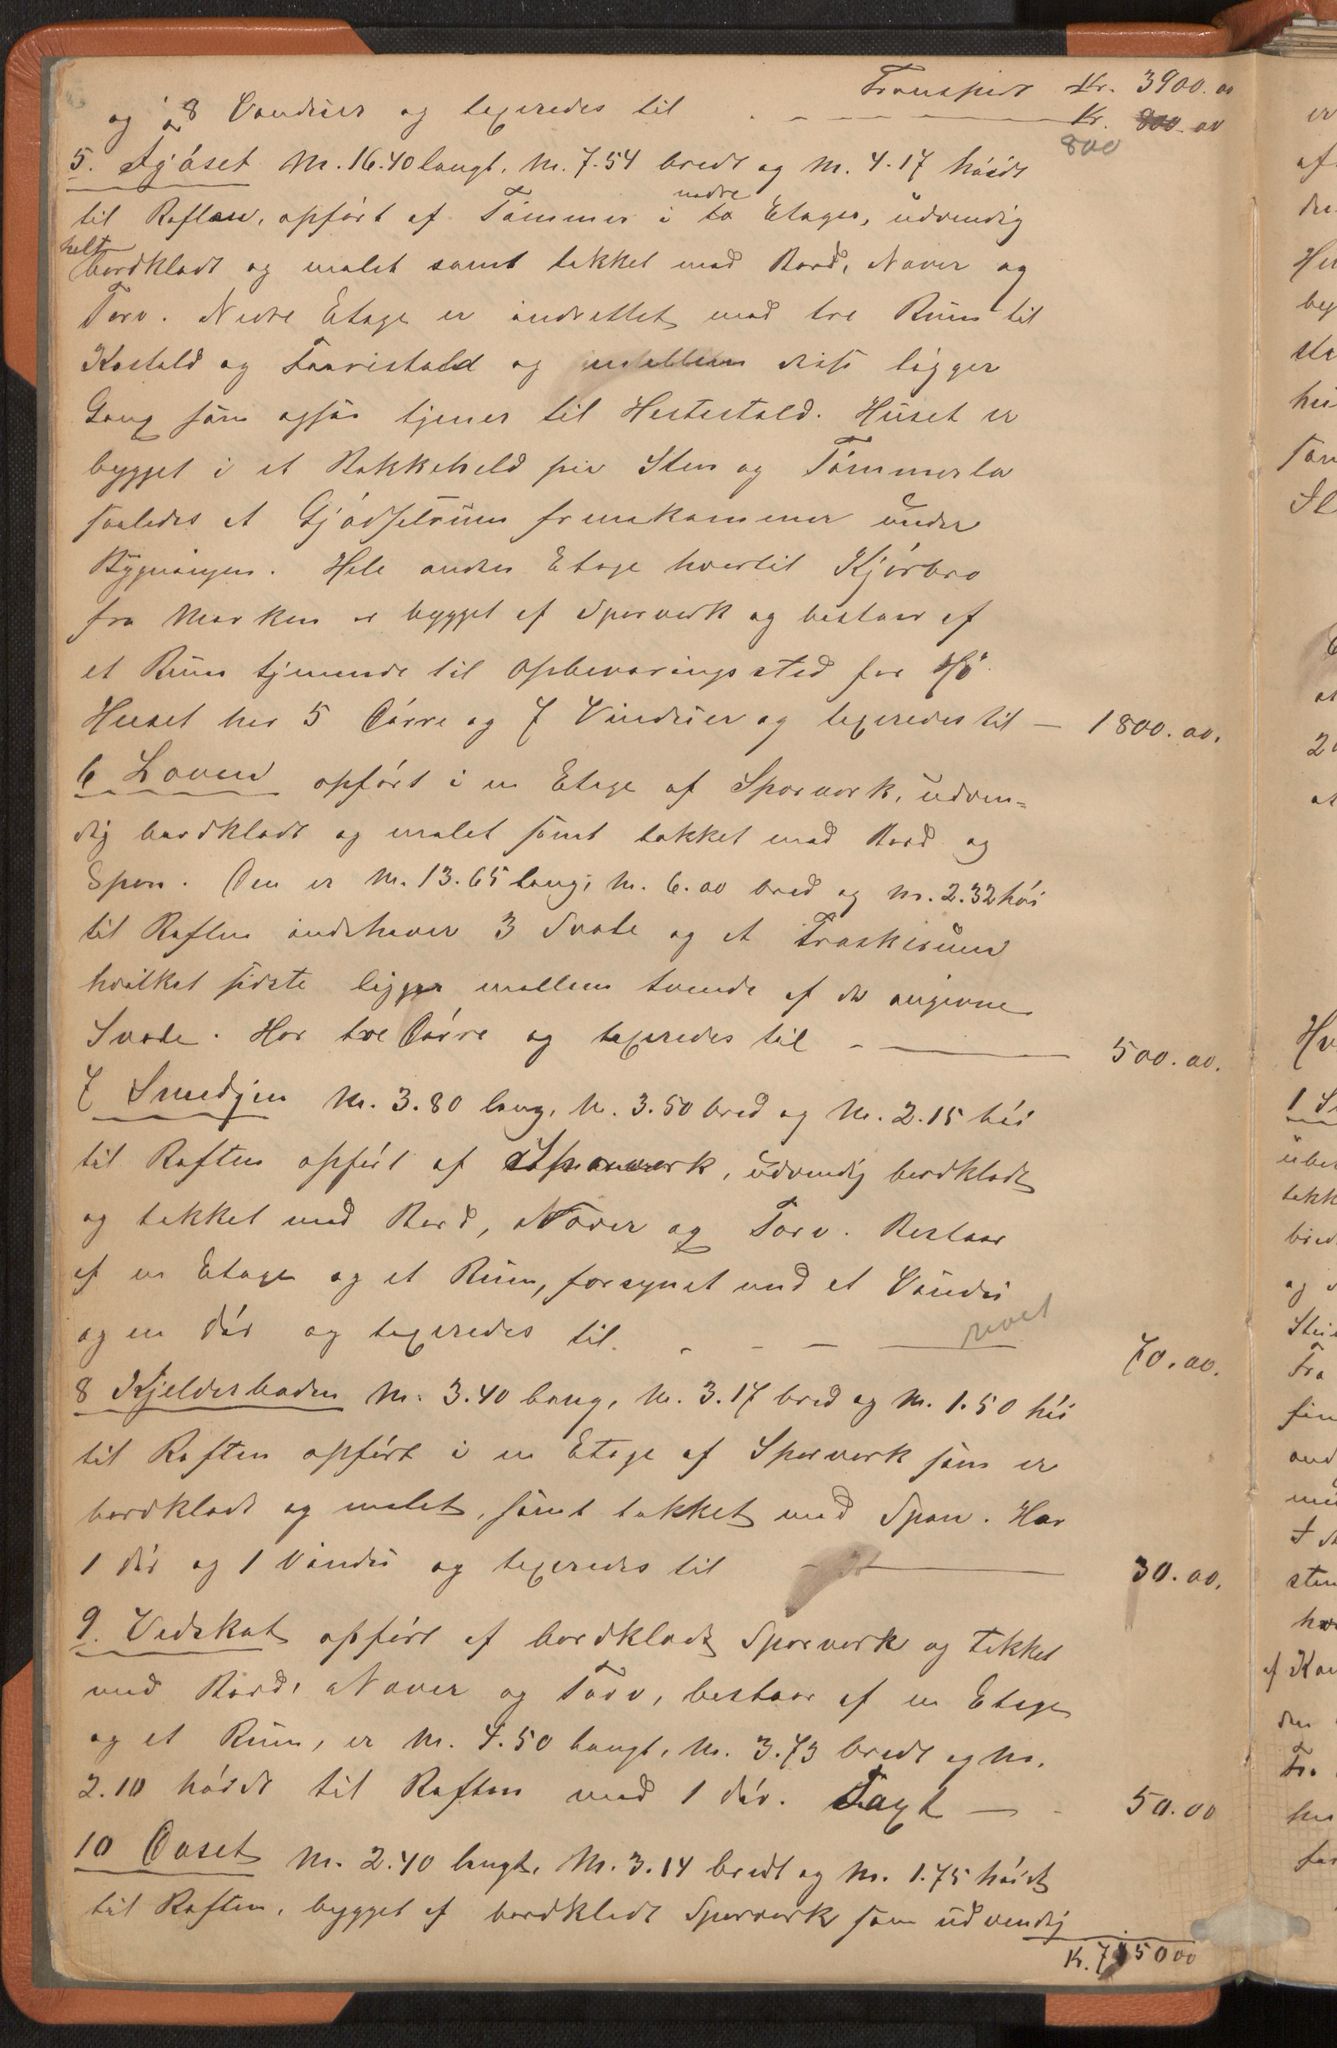 Transport Kr. 3900.00
og 8 Vinduer og taxeredes til - - Kr. 800.00
800
5. Fjöset M. 16.40 langt, M. 7.54 bredt og M. 4.17 höidt
til Raften, opført af Tömmer i nedre to Etager, udvendig
helt bordklædt og malet samt tækket med Bord, Næver og
Torv. Nedre Etage er indrettet med tre Rum til
Kostald og Faarestald og imellem disse ligger
Gang som ogsaa tjener til Hestestald. Huset er
bygget i et Bakkeheld paa Sten og Tömmerla
saaledes at Gjödselrum fremkommer under
Bygningen. Hele anden Etage hvortil Kjörbro
fra Marken er bygget af Sperverk og bestaar af
et Rum tjenende til Opbevaringssted for Hö.
Huset har 5 Dörre og 7 Vinduer og taxeredes til — 1800.00.
6 Laaven opfört i en Etage af Sperverk, udven=
dig bordklædt og malet samt tækket med Bord og
Spon. Den er M. 13.65 lang, M. 6.00 bred og M. 2.32 höi
til Raften indehaver 3 Svale og et Træskerum
hvilket sidste ligger mellem tvende af de angivne
Svale. Har tre Dörre og taxeredes til - — 500.00.
7 Smedjen M. 3.80 lang, M. 3.50 bred og M. 2.15 höi
til Raften opfört af Sperverk, udvendig bordklædt
og tækket med Bord, Næver og Torv. Bestaar
af en Etage og et Rum, forsynet med et Vindu
og en Dör og taxeredes til. - - - — 70.00.
revet
8 Kjelderboden M. 3.40 lang, M. 3.17 bred og M. 1.50 höi
til Raften opfört i en Etage af Sperverk som er
bordklædt og malet, samt tækket med Spon. Har
1 Dör og 1 Vindu og taxeredes til — 30.00.
9. Vedskot opfört af bordklædt Sperverk og tækket
med Bord, Næver og Torv, bestaar af en Etage
og et Rum, er M. 4.50 langt, M. 3.73 bredt og M.
2.10 höidt til Raften med 1 Dör. Taxt — - 50.00
10 Daset M. 2.40 langt, M. 3.14 bredt og M. 1.75 höidt
til Raften, bygget af bordklædt Sperverk som udvendig
Kr. 7150 00